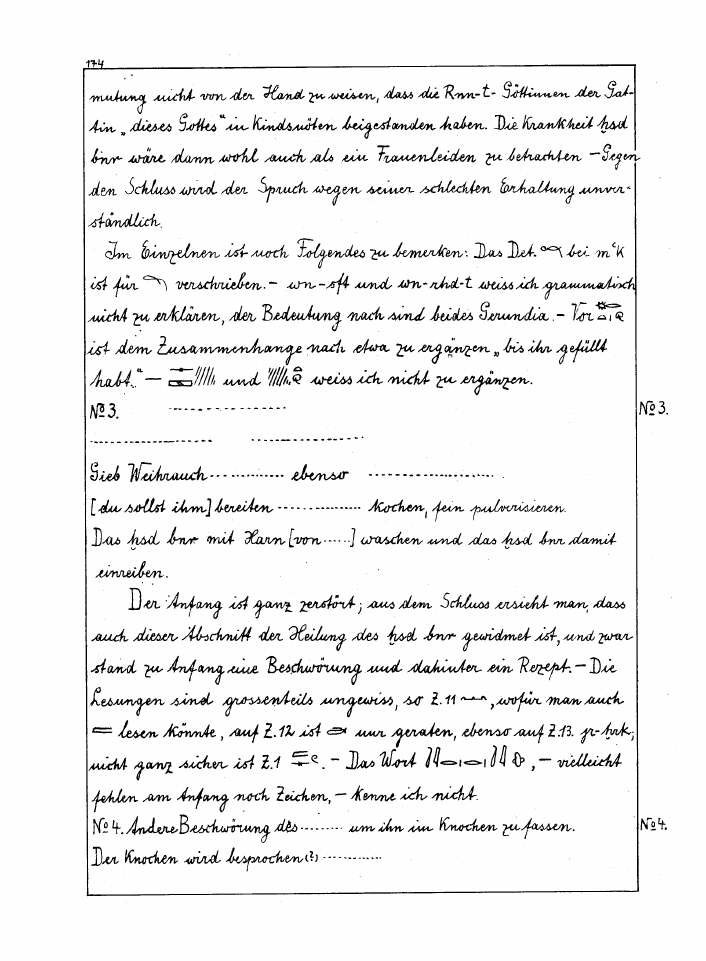 174
mutung nicht von der Hand zu weisen, dass die Rnn-t-Göttinnen der Gat-
tin „dieses Gottes“ in Kindsnöten beigestanden haben. Die Krankheit ḫsd
bnr wäre dann wohl auch als ein Frauenleiden zu betrachten – Gegen
den Schluss wird der Spruch wegen seiner schlechten Erhaltung unver-
ständlich.
Im Einzelnen ist noch Folgendes zu bemerken: Das Det. bei mꜥk
ist für verschrieben. – wn-sft und wn-rhd-t weiss ich grammatisch
nicht zu erklären, der Bedeutung nach sind beides Gerundia. – Vor
ist dem Zusammenhange nach etwa zu ergänzen „bis ihr gefüllt
habt.“ – und weiss ich nicht zu ergänzen.
No 3. ----------------
No 3.
---------------- ----------------
Gieb Weihrauch ------------ ebenso ------------------
[du sollst ihm] bereiten -------------- kochen, fein pulverisieren.
Das ḫsd bnr mit Harn [von ......] waschen und das ḫsd bnr damit
einreiben.
Der Anfang ist ganz zerstört; aus dem Schluss ersieht man, dass
auch dieser Abschnitt der Heilung des ḫsd bnr gewidmet ist, und zwar
stand zu Anfang eine Beschwörung und dahinter ein Rezept. – Die
Lesungen sind grossenteils ungewiss, so Z. 11, wofür man auch
lesen könnte, auf Z. 12 ist nur geraten, ebenso auf Z. 13.
nicht ganz sicher ist Z. 1. – Das Wort, – vielleicht
fehlen am Anfang noch Zeichen, – kenne ich nicht.
No 4. Andere Beschwörung des ......... um ihn im Knochen zu fassen.
No 4.
Der Knochen wird besprochen (?) ------------